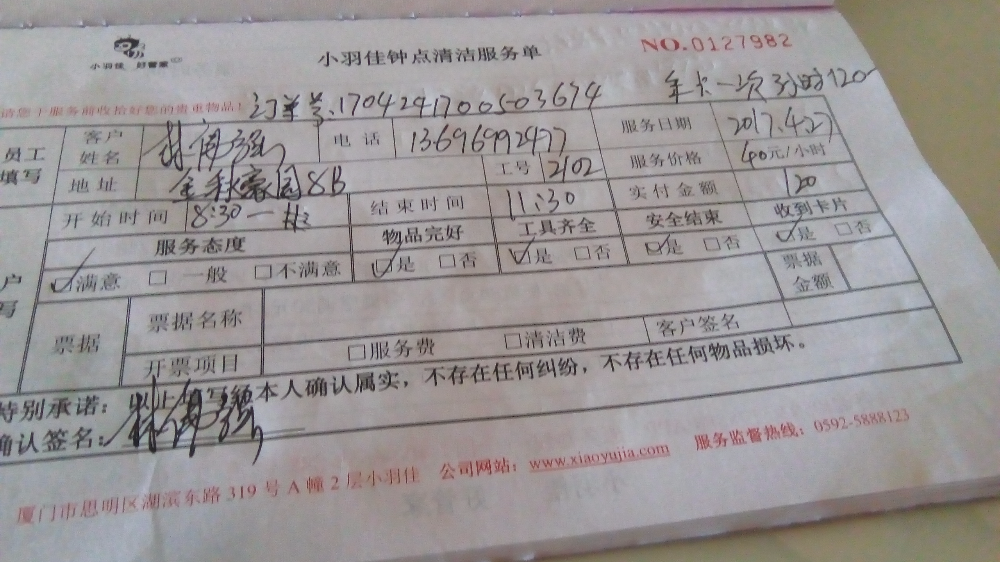 小羽佳 好管家
小羽佳钟点清洁服务单
NO.0127982
请您于服务前收拾好您的贵重物品！
订单号:1704241700503674
年卡一次 3小时120
员工填写
客户姓名 强
电话 13696992477
服务日期 2017.4.27
地址 金秋豪园8B
工号 2102
服务价格 40元/小时
开始时间 8:30一
结束时间 11:30
实付金额 120
服务态度 物品完好 工具齐全 安全结束 收到卡片
☑满意 □一般 □不满意 ☑是 □否 ☑是 □否 ☑是 □否 ☑是 □否
户写
票据 票据名称 票据金额
开票项目 □服务费 □清洁费 客户签名
特别承诺：以上填写经本人确认属实，不存在任何纠纷，不存在任何物品损坏。
确认签名： 强
厦门市思明区湖滨东路319号A幢2层小羽佳 公司网站：www.xiaoyujia.com 服务监督热线：0592-5888123